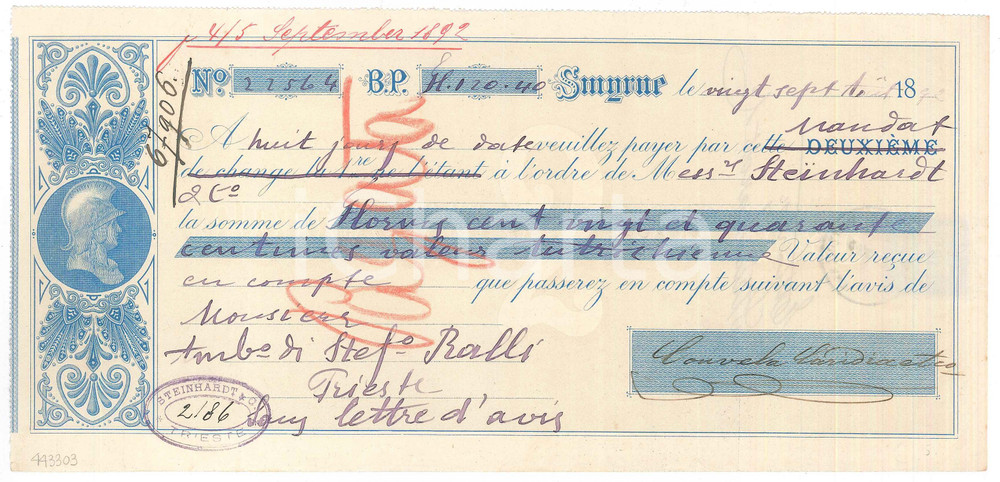 4/5 September 1892
67906.
No. 22564 B.P. fl. 120.40 Smyrne le vingt sept 18
Mandat
A huit jours de date veuillez payer par cette DEUXIÈME
de change la 1re ne l'étant à l'ordre de Messrs Steinhardt
& Co
la somme de Florins cent vingt et quarante
centimes valeur autrichienne Valeur reçue
en compte que passerez en compte suivant l'avis de
Monsieur
Ambo di Stefo Ralli
Trieste
Sans lettre d'avis
STEINHARDT & Co
2186
TRIESTE
443303